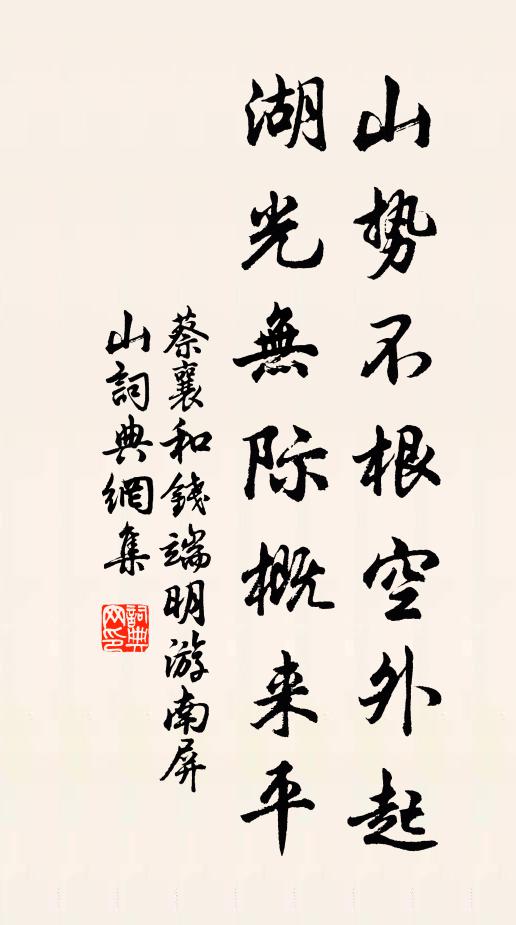 山势不根空外起
湖光無际概来平
蔡襄和錢端明游南屏
山詞典網集
詞典网印